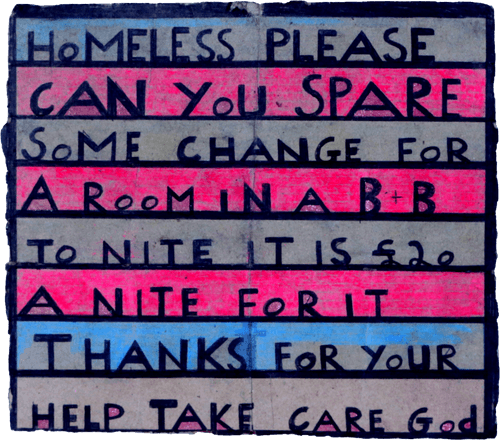 HOMELESS PLEASE
CAN YOU SPARE
SOME CHANGE FOR
A ROOM IN A B+B
TO NITE IT IS £20
A NITE FOR IT
THANKS FOR YOUR
HELP TAKE CARE God